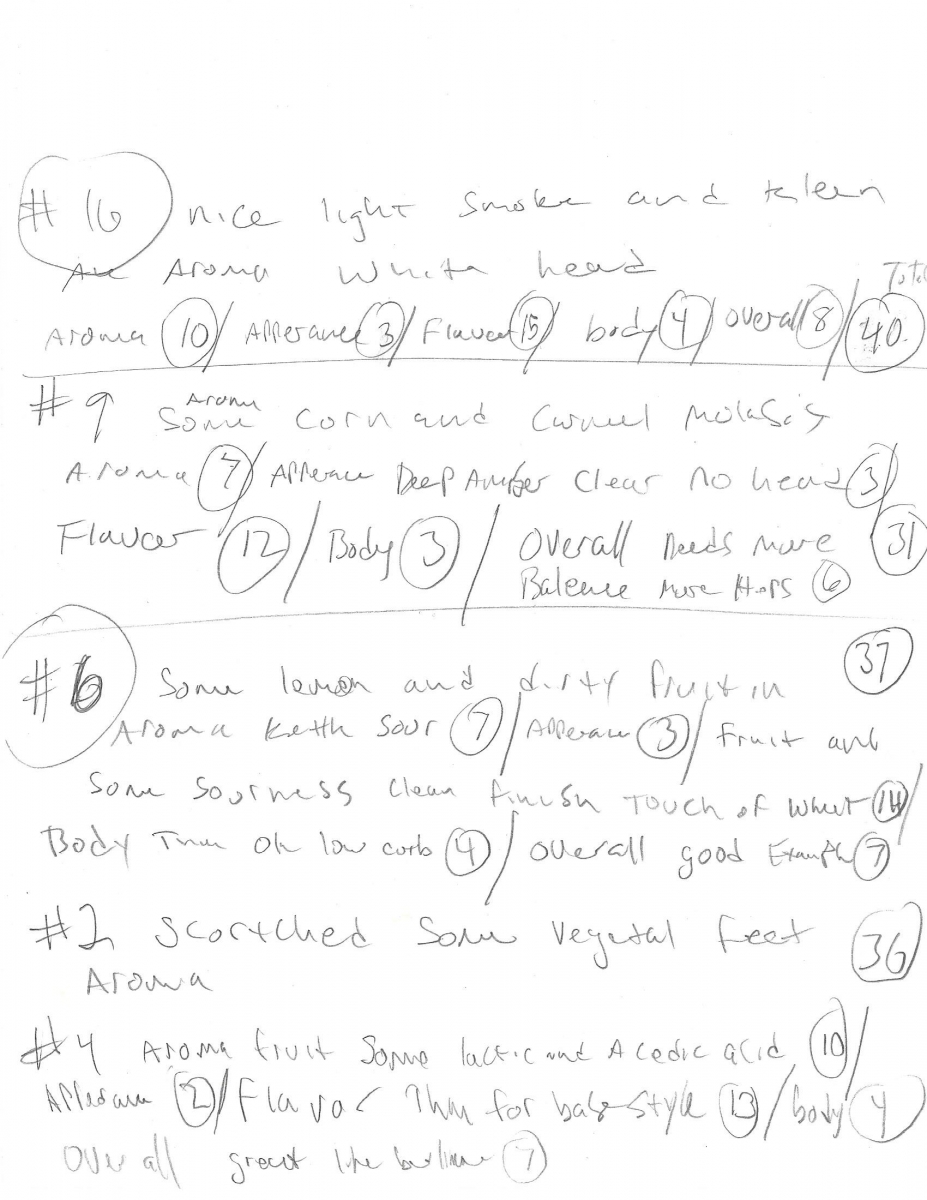 # 16 nice light smoke and
Aroma white head
Total
Aroma 10 / Apperance 3 / Flavor 15 / body 4 / overall 8 / 40
Aroma
# 9 Some corn and Carmel Molasis
Aroma 7 / Apperance Deep Amber Clear no head 3 /
Flavor 12 / Body 3 / Overall needs more 31
Balence more Hops 6
#6 Some lemon and dirty fruit in 37
Aroma Kettle Sour 7 / Apperance 3 / fruit and
Some Sourness Clean finish Touch of wheat 14 /
Body Thin Ok low carb 4 / overall good Example 7
#2 Scortched Some vegetal feet 36
Aroma
#4 Aroma fruit Some lactic and Acedic acid 10 /
2 / Flavor Thin for base style 13 / body 4
Overall great like 7